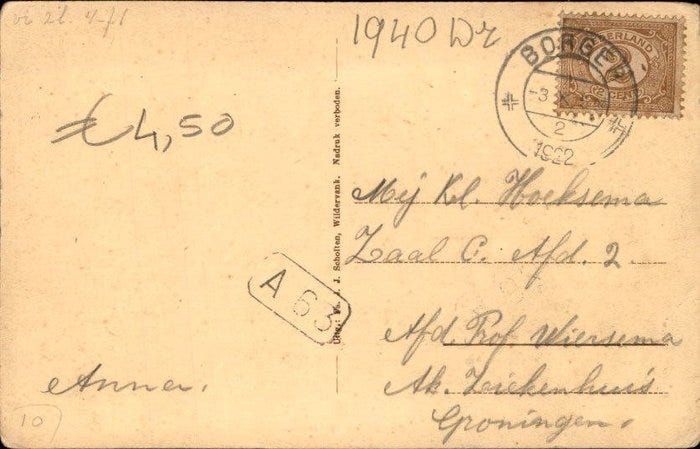 1940 Dr
€ 4,50
NEDERLAND
CENT
BORGER
-3
2
1922
Mej Kl. Hoeksema
Zaal C. Afd. 2
Afd. Prof Wiersema
Ak. Ziekenhuis
Groningen.
A 63
J. Scholten, Wildervank. Nadruk verboden.
Anna.
10